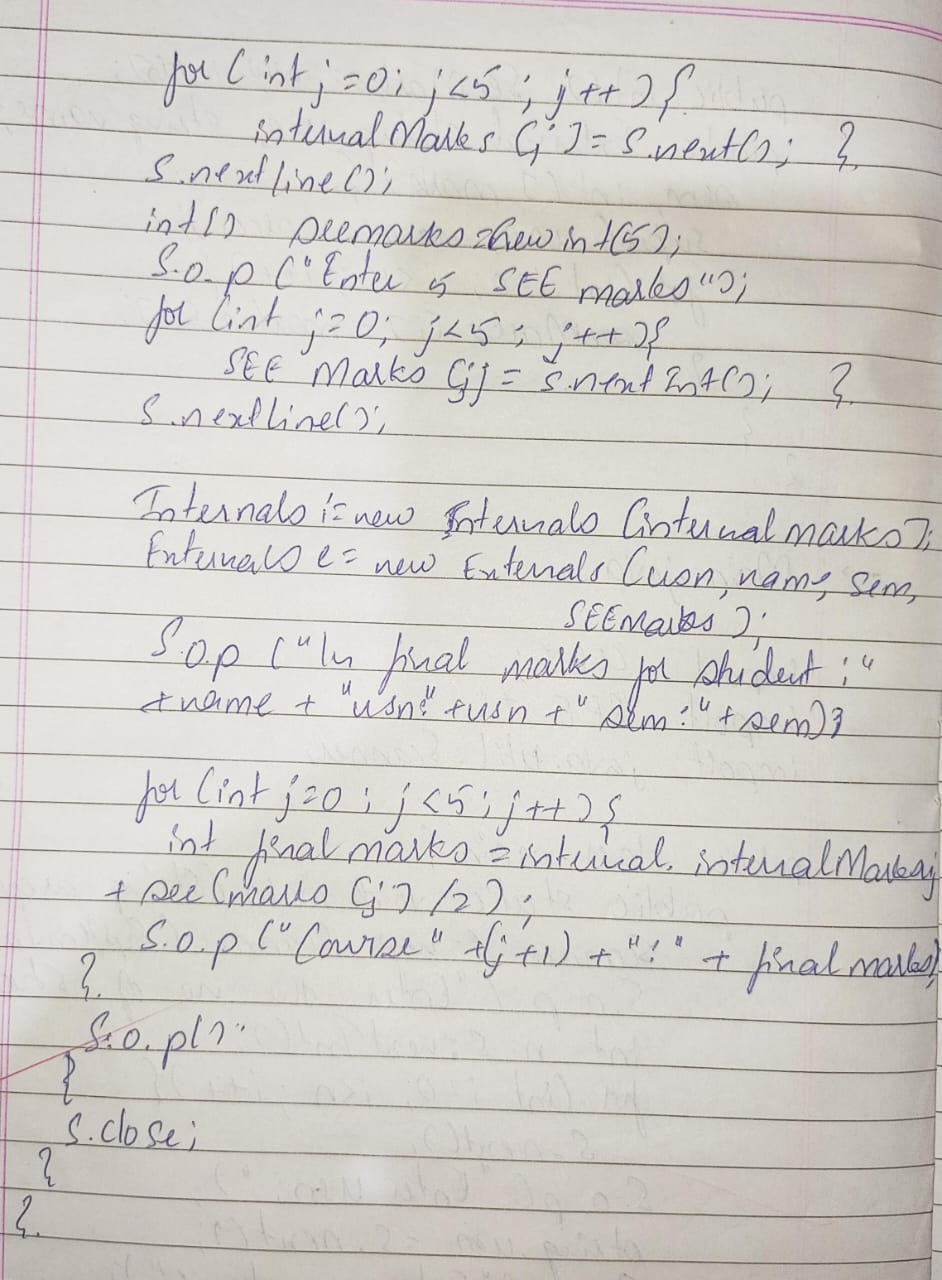 for (int j=0; j<5; j++){
internal Marks [j]=S.next(); }
S.nextline();
int[] seemarks=new int[5];
S.o.p ("Enter 5 SEE marks");
for (int j=0; j<5; j++){
SEE Marks [j] = S.next Int(); }
S.nextline();
Internals i=new Internals (internal marks);
Externals e= new Externals (usn, name, sem,
SEEMarks );
S.o.p ("\n final marks for student :"
+name + "usn:" +usn +" sem:" + sem);
for (int j=0; j<5; j++){
int final marks = internal. internalMarks[j]
+ see (marks [j] /2);
S.o.p ("Course" +(j+1) + ":" + final marks);
}
S.o.p();
}
S.close;
}
}